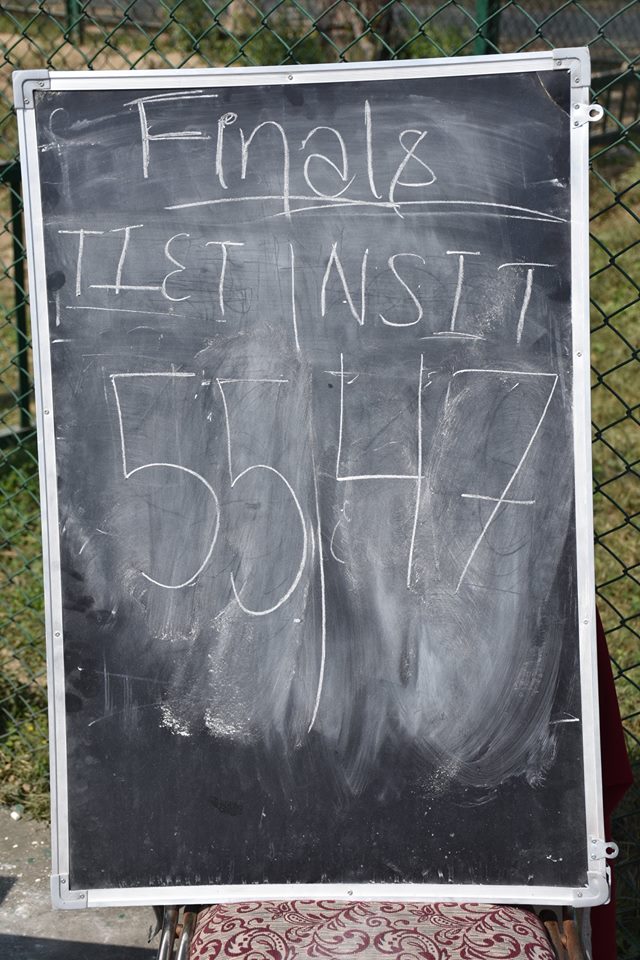 Finals
TIET | NSIT
55 | 47